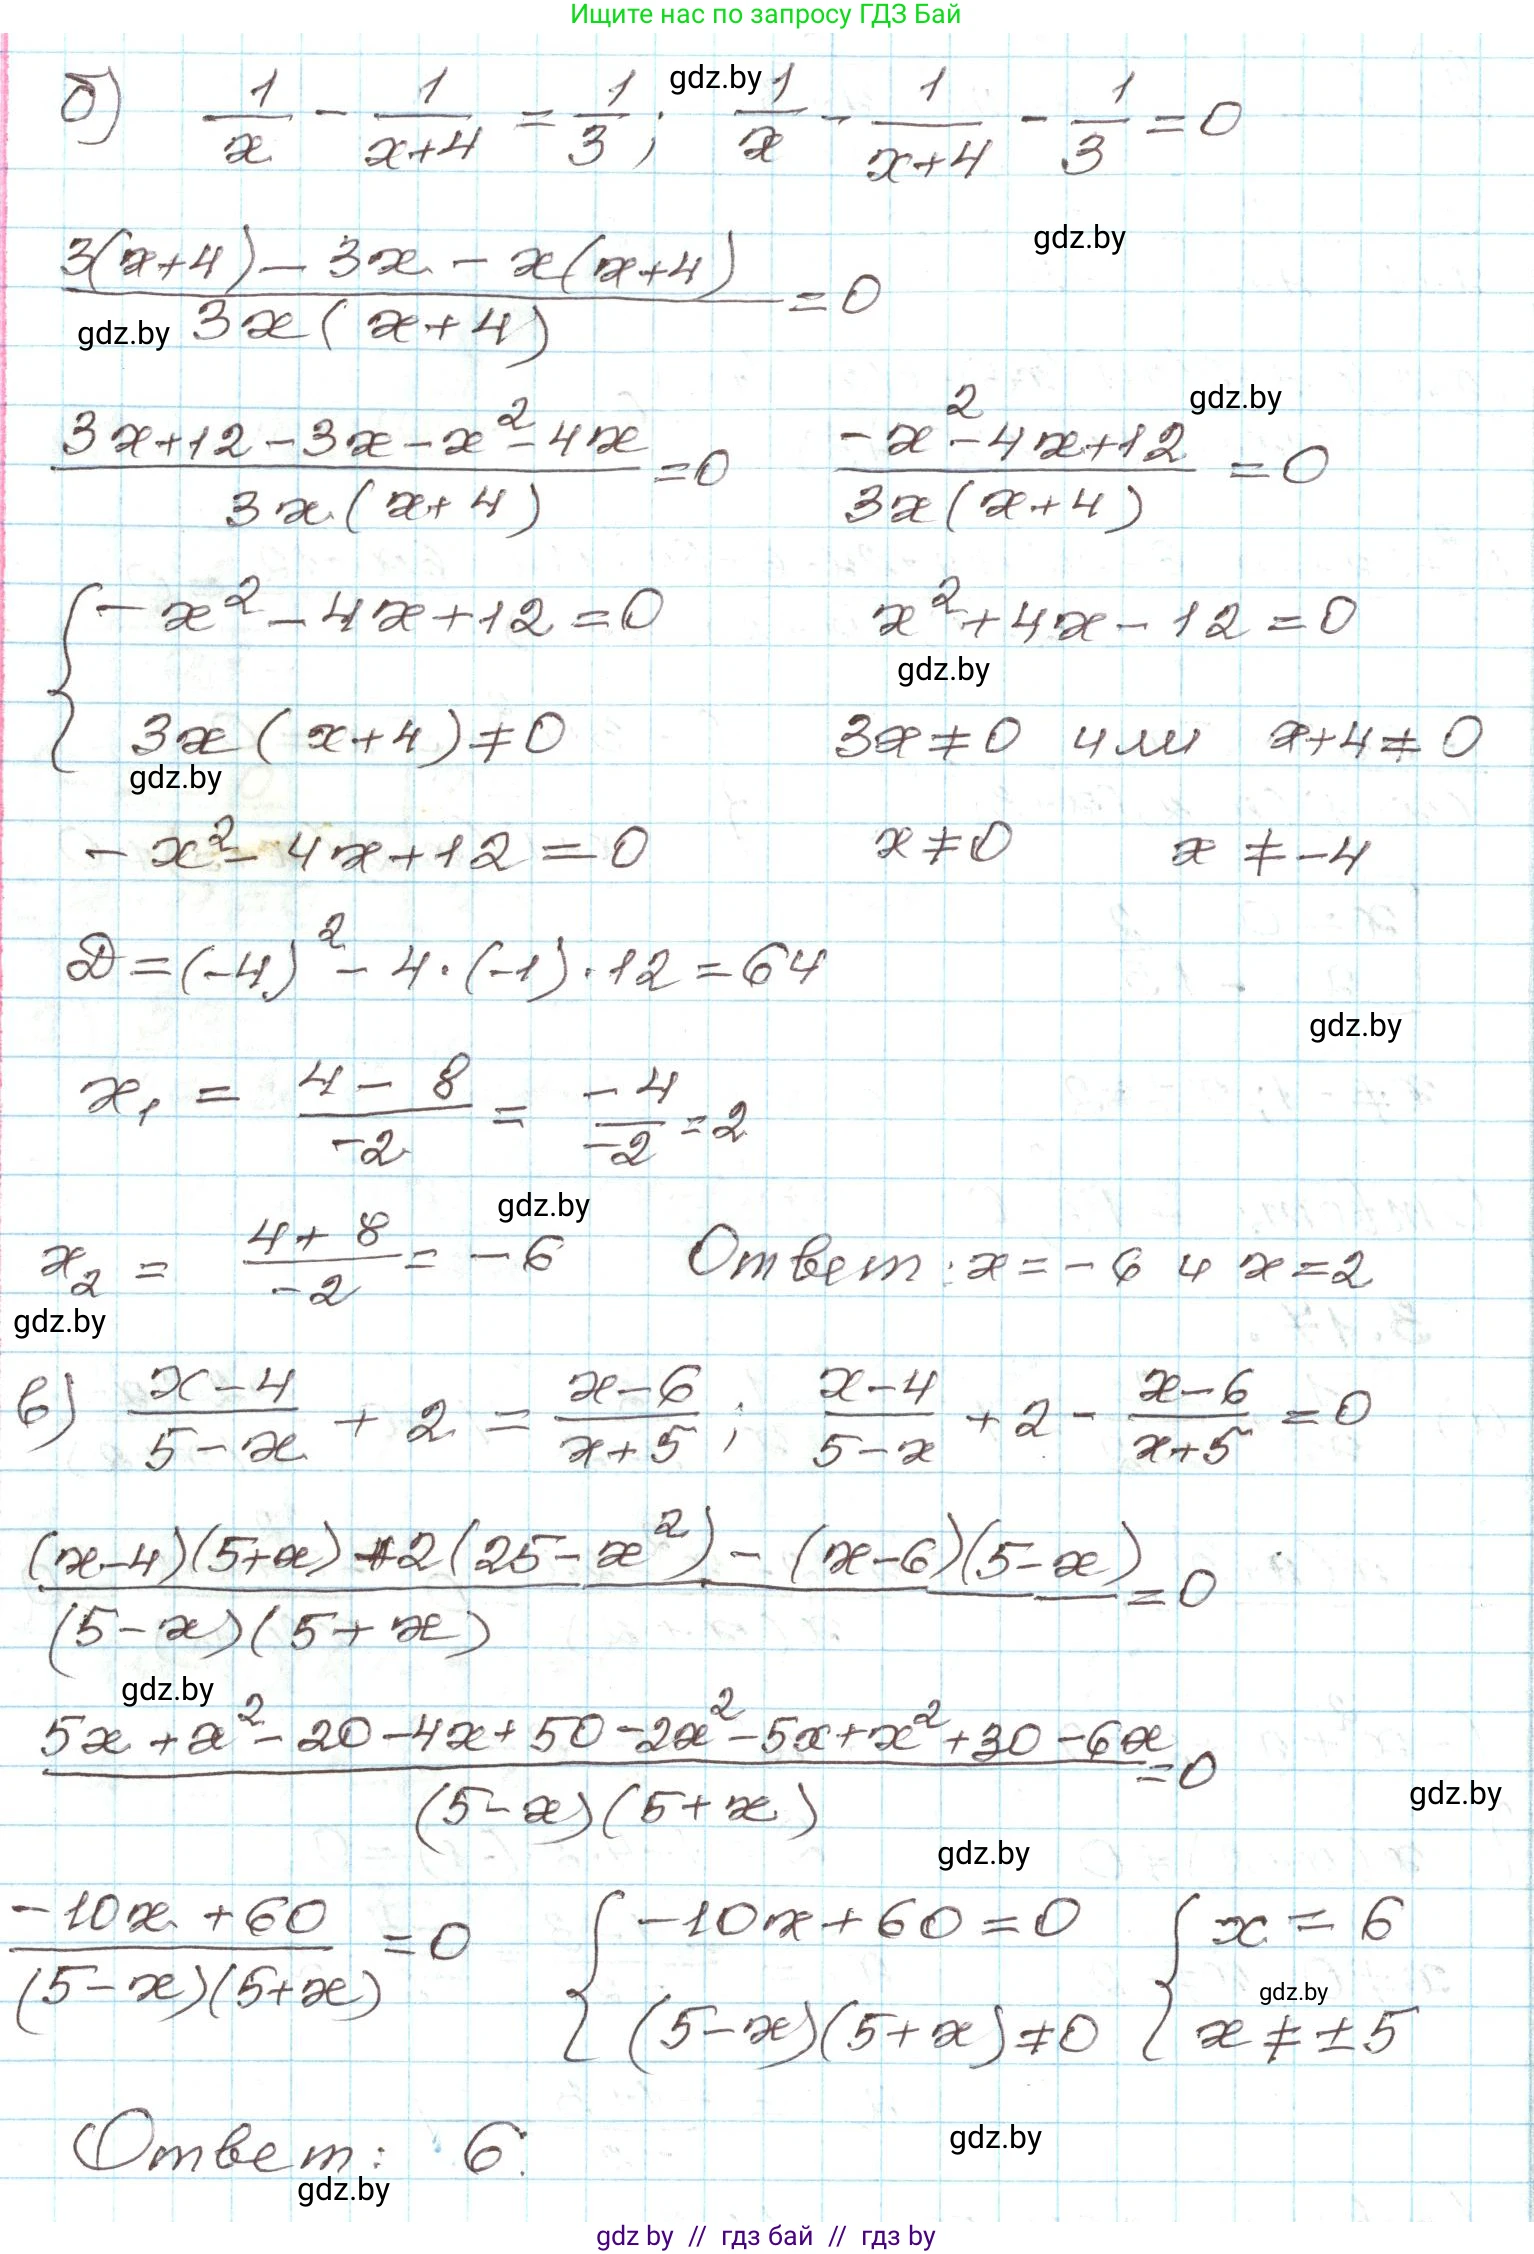 Ищите нас по запросу ГДЗ Бай
б) 1/x - 1/(x+4) = 1/3; gdz.by 1/x - 1/(x+4) - 1/3 = 0
gdz.by
(3(x+4) - 3x - x(x+4))/(3x(x+4)) = 0
gdz.by
gdz.by
(3x+12-3x-x²-4x)/(3x(x+4)) = 0 (-x²-4x+12)/(3x(x+4)) = 0
{ -x²-4x+12=0 x²+4x-12=0
gdz.by
3x(x+4)≠0 3x≠0 или x+4≠0
gdz.by
-x²-4x+12=0 x≠0 x≠-4
Д=(-4)²-4·(-1)·12=64
gdz.by
x₁ = (4-8)/(-2) = (-4)/(-2) = 2
gdz.by
x₂ = (4+8)/(-2) = -6 Ответ: x=-6 и x=2
gdz.by
в) (x-4)/(5-x) + 2 = (x-6)/(x+5); (x-4)/(5-x) + 2 - (x-6)/(x+5) = 0
((x-4)(5+x)+2(25-x²)-(x-6)(5-x))/((5-x)(5+x)) = 0
gdz.by
(5x+x²-20-4x+50-2x²-5x+x²+30-6x)/((5-x)(5+x)) = 0
gdz.by
gdz.by
(-10x+60)/((5-x)(5+x)) = 0 { -10x+60=0 { x=6
gdz.by
(5-x)(5+x)≠0 x≠±5
Ответ: 6.
gdz.by
gdz.by
gdz by // гдз бай // гдз by